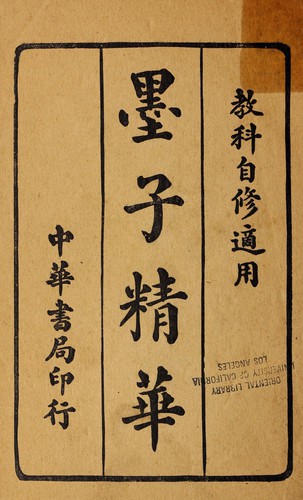 教科自修適用
墨子精華
中華書局印行
ORIENTAL LIBRARY
UNIVERSITY OF CALIFORNIA
LOS ANGELES